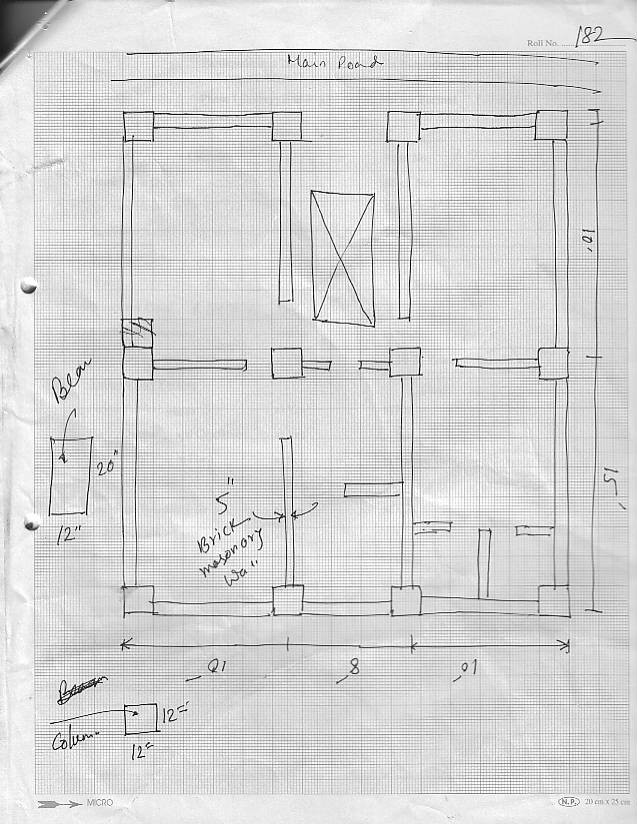 Roll No. 182
Main Road
10'
Beam
20"
12"
5"
Brick
masonary
Wall
15'
10'
8'
10'
Column
12"
12"
MICRO
N.P. 20 cm x 25 cm